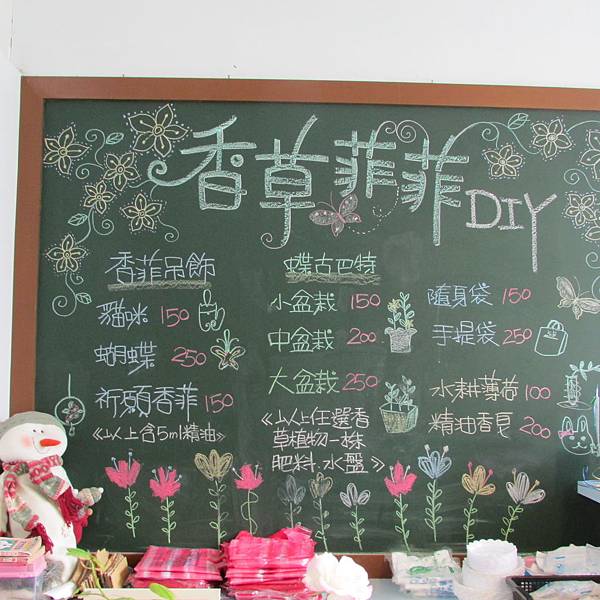 香草菲菲DIY
香菲吊飾
貓咪 150
蝴蝶 250
祈願香菲 150
《以上含5ml精油》
蝶古巴特
小盆栽 150
中盆栽 200
大盆栽 250
《以上任選香
草植物一株
肥料.水盤》
隨身袋 150
手提袋 250
水耕薄荷 100
精油香皂 200